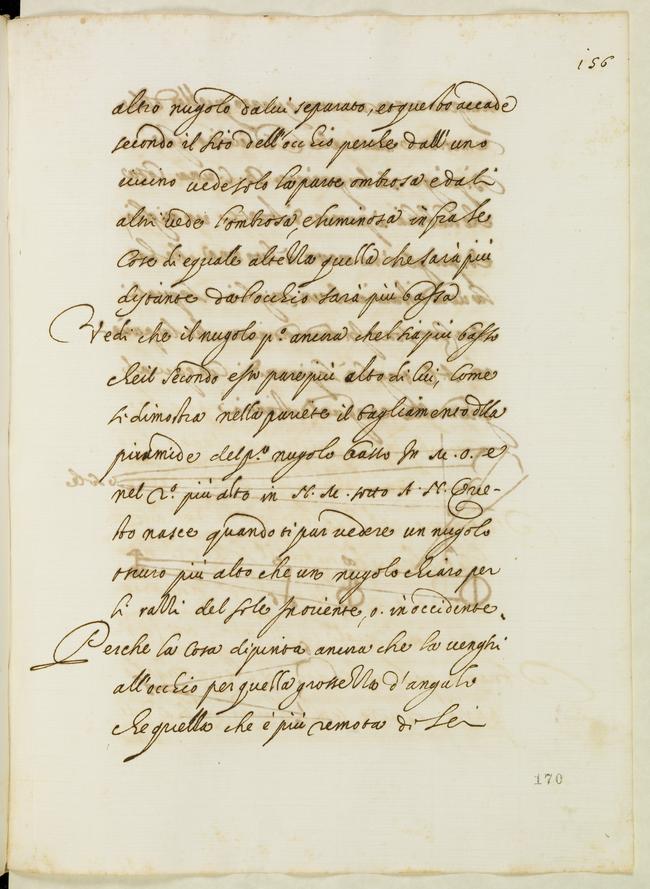 156
altro nugolo da lui separato, et questo accade
secondo il sito dell'occhio perche dall'uno
vicino vede solo la parte ombrosa e da li
altri vede l'ombrosa, e luminosa infra le
Cose di equale altezza quella che sarà più
distante da l'occhio sarà più bassa
Vedi che il nugolo p.º ancora chel sia più basso
che il secondo esso pare più alto di lui, come
si dimostra nella pariete il tagliamento dlla
piramide del p.º nugolo basso M. o. e
nel 2.º più alto in N. M. sotto A. N. Que-
sto nasce quando ti par vedere un nugolo
oscuro più alto che un nugolo chiaro per
li razzi del sole in oriente, o. in occidente.
Perche la Cosa dipinta ancora che la venghi
all'occhio per quella grossezza d'angolo
che quella che è più remota di lei
170